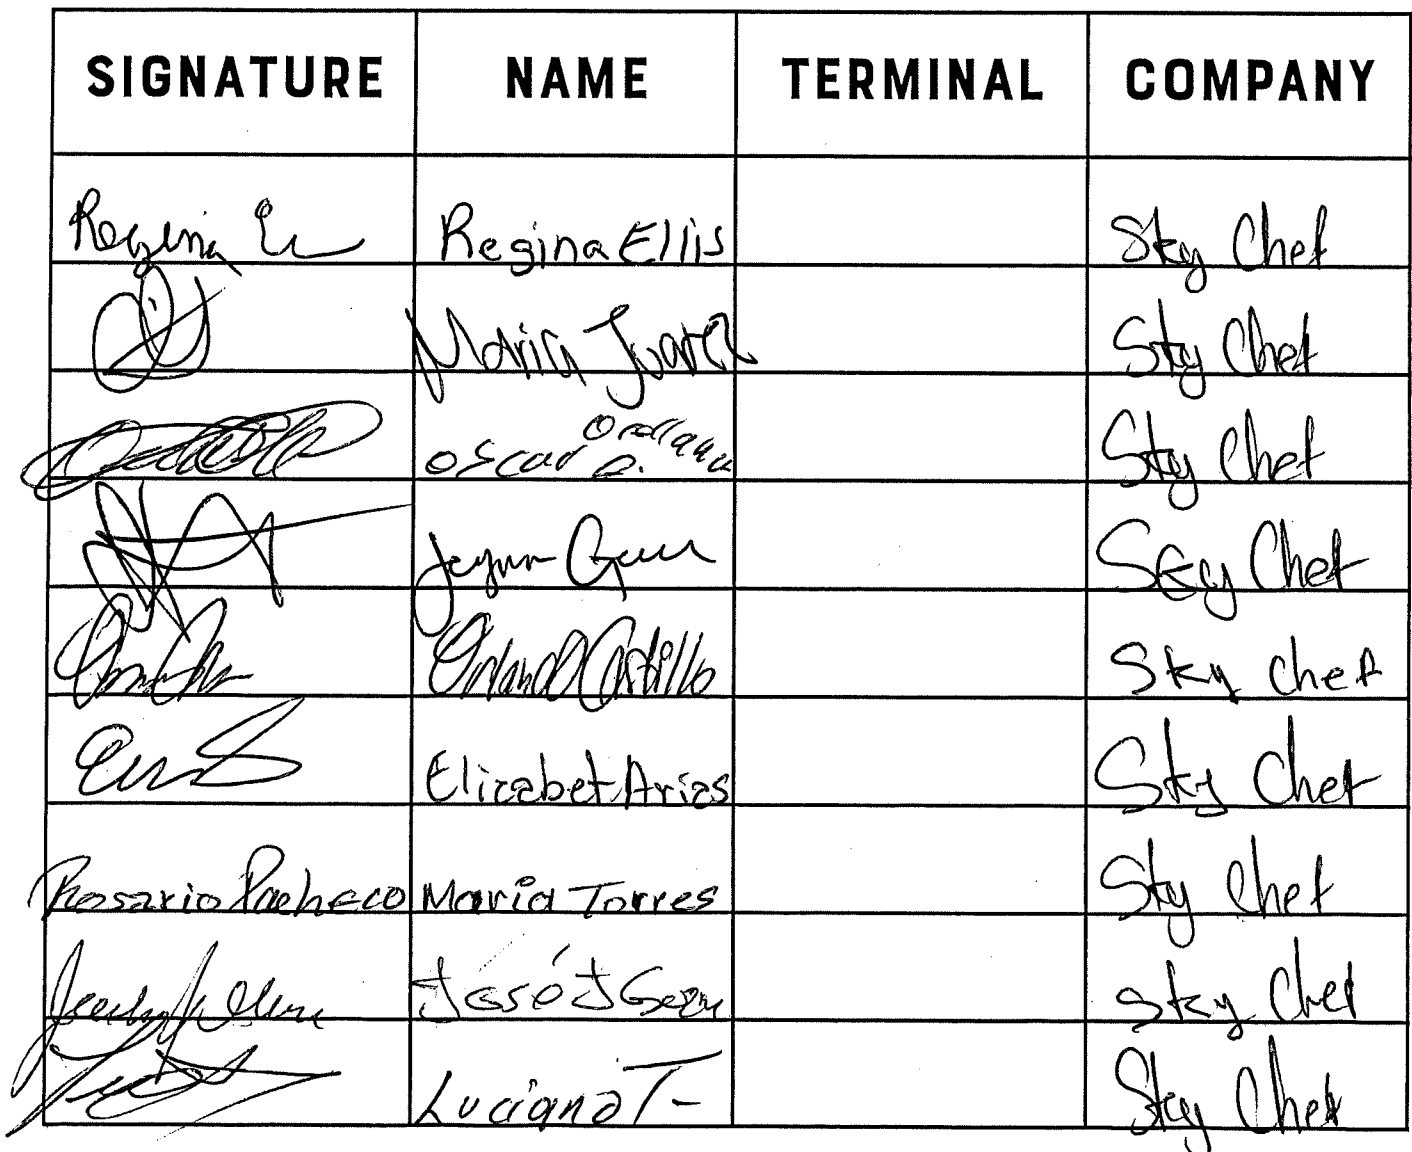 SIGNATURE NAME TERMINAL COMPANY
Regina Regina Ellis Sky Chef
Maria Juarez Sky Chef
Orellana
oscar Sky Chef
Sky Chef
Orlando Castillo Sky Chef
Elizabet Arias Sky Chef
Rosario Pacheco Maria Torres Sky Chef
José J Sky Chef
Luciano T- Sky Chef